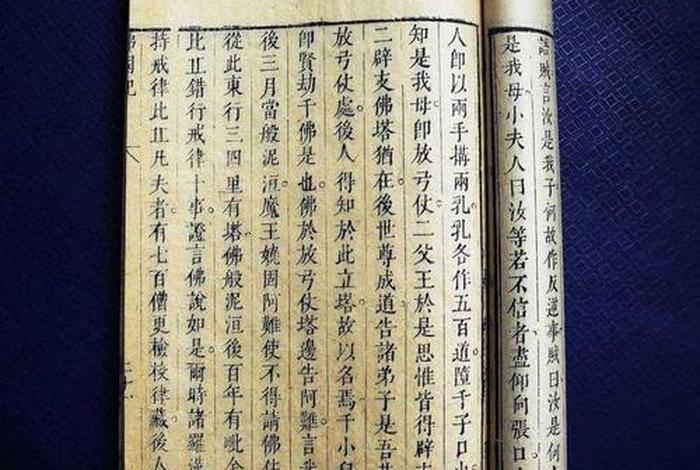 語賊言汝是我子何故作反逆事賊曰汝是何
是我母小夫人曰汝等若不信者盡仰向張口
人即以兩手搆兩乳。乳各作五百道。墮千子口
知是我母。即放弓仗。二父王於是思惟皆得辟支
二辟支佛塔猶在。後世尊成道。告諸弟子是吾昔
放弓仗處。後人得知於此立塔。故以名焉千小兒
即賢劫千佛是也。佛於放弓仗塔邊告阿難。言我
後三月當般泥洹。魔王嬈固阿難使不得請佛住
從此東行三四里有塔。佛般泥洹後百年有毗舍
比丘錯行戒律十事。證言佛說如是。爾時諸羅漢
持戒律比丘凡夫者。有七百僧更檢校律藏。後人
佛國記